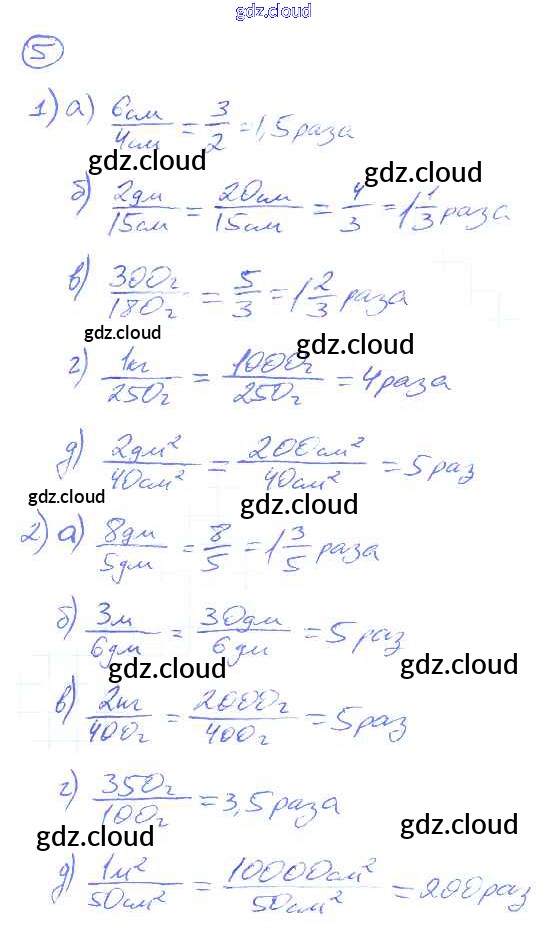 gdz.cloud
5
1) а) 6см/4см = 3/2 = 1,5 раза
gdz.cloud gdz.cloud
б) 2дм/15см = 20см/15см = 4/3 = 1 1/3 раза
в) 300г/180г = 5/3 = 1 2/3 раза
gdz.cloud gdz.cloud
г) 1кг/250г = 1000г/250г = 4 раза
д) 2дм²/40см² = 200см²/40см² = 5 раз
gdz.cloud gdz.cloud
2) а) 8дм/5дм = 8/5 = 1 3/5 раза
б) 3м/6дм = 30дм/6дм = 5 раз
gdz.cloud gdz.cloud
в) 2кг/400г = 2000г/400г = 5 раз
г) 350г/100г = 3,5 раза
gdz.cloud gdz.cloud
д) 1м²/50см² = 10000см²/50см² = 200 раз